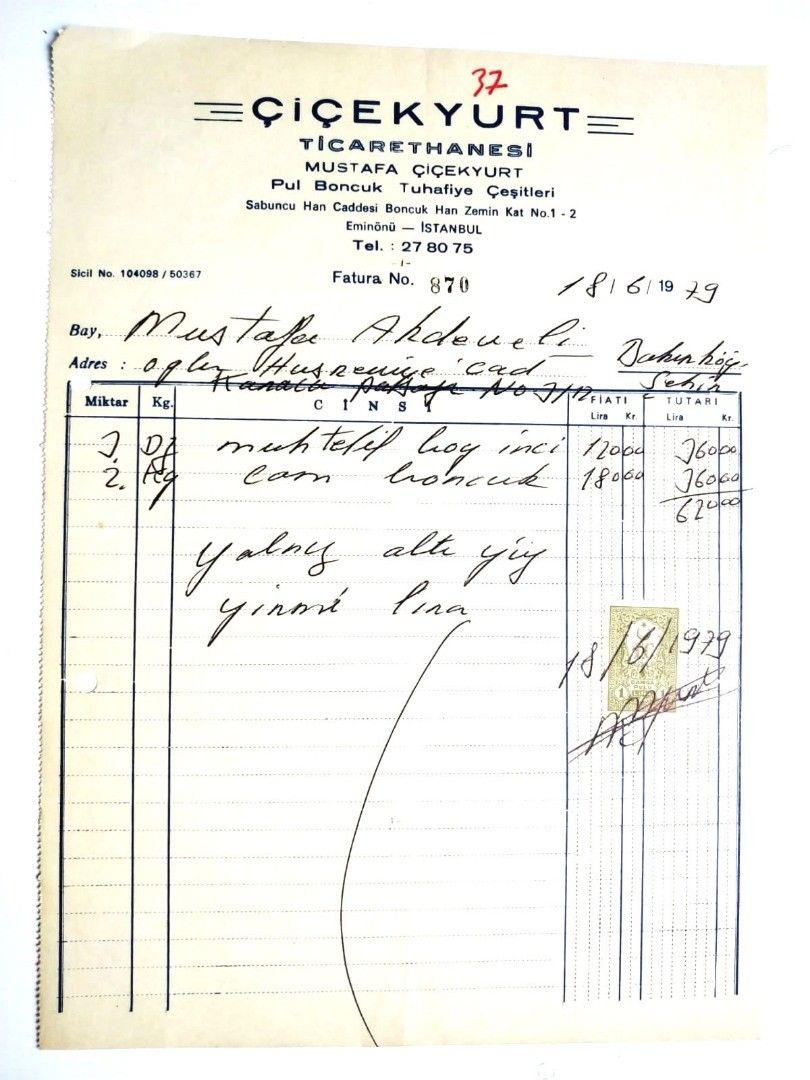 37
ÇİÇEKYURT
TİCARETHANESİ
MUSTAFA ÇİÇEKYURT
Pul Boncuk Tuhafiye Çeşitleri
Sabuncu Han Caddesi Boncuk Han Zemin Kat No.1 - 2
Eminönü — İSTANBUL
Tel. : 27 80 75
- 1 -
Sicil No. 104098 / 50367
Fatura No. 870
18/6/1979
Bay, Mustafa Akdeveli
Adres : oğlu Husreniye cad Bakırköy
No Şehir
Miktar Kg. CİNSİ FİATI TUTARI
Lira Kr. Lira Kr.
3. Dz muhtelif boy inci 12000 36000
2. Kg cam boncuk 18000 36000
62000
yalnız altı yüz
yirmi lira
18/6/1979
DAMGA
PULU
1